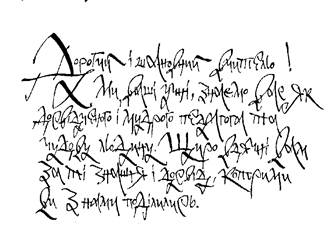 Дорогий і шановний вчителю!
Ми, ваші учні, знаємо Вас як
досвідченого і мудрого педагога та
чудову людину. Щиро вдячні Вам
за ті знання і досвід, которими
ви з нами поділились.